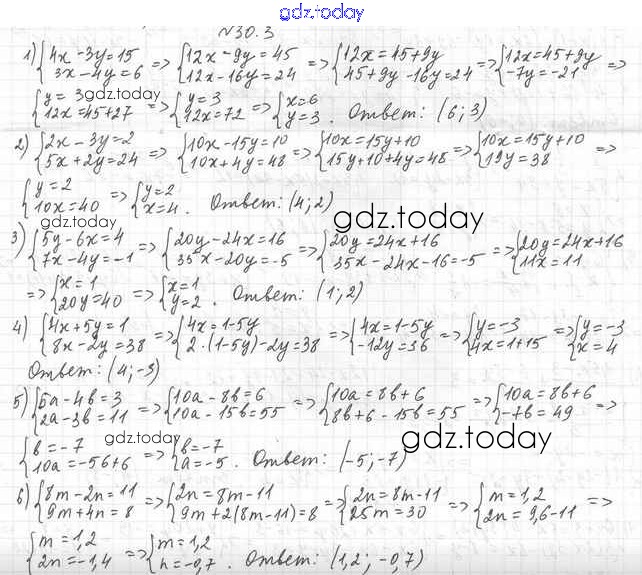 gdz.today
№30.3
1) {4x-3y=15 3x-4y=6 => {12x-9y=45 12x-16y=24 => {12x=45+9y 45+9y-16y=24 => {12x=45+9y -7y=-21 =>
{y=3 12x=45+27 => {y=3 12x=72 => {x=6 y=3. Ответ: (6;3)
gdz.today
2) {2x-3y=2 5x+2y=24 => {10x-15y=10 10x+4y=48 => {10x=15y+10 15y+10+4y=48 => {10x=15y+10 19y=38 =>
{y=2 10x=40 => {y=2 x=4. Ответ: (4;2)
gdz.today gdz.today
3) {5y-6x=4 7x-4y=-1 => {20y-24x=16 35x-20y=-5 => {20y=24x+16 35x-24x-16=-5 => {20y=24x+16 11x=11
=> {x=1 20y=40 => {x=1 y=2. Ответ: (1;2)
4) {4x+5y=1 8x-2y=38 => {4x=1-5y 2·(1-5y)-2y=38 => {4x=1-5y -12y=36 => {y=-3 4x=1+15 => {y=-3 x=4
Ответ: (4;-3)
5) {5a-4b=3 2a-3b=11 => {10a-8b=6 10a-15b=55 => {10a=8b+6 8b+6-15b=55 => {10a=8b+6 -7b=49 =>
gdz.today gdz.today
{b=-7 10a=-56+6 => {b=-7 a=-5. Ответ: (-5;-7)
6) {8m-2n=11 9m+4n=8 => {2n=8m-11 9m+2(8m-11)=8 => {2n=8m-11 25m=30 => {m=1,2 2n=9,6-11 =>
{m=1,2 2n=-1,4 => {m=1,2 n=-0,7. Ответ: (1,2; -0,7)
gdz.today